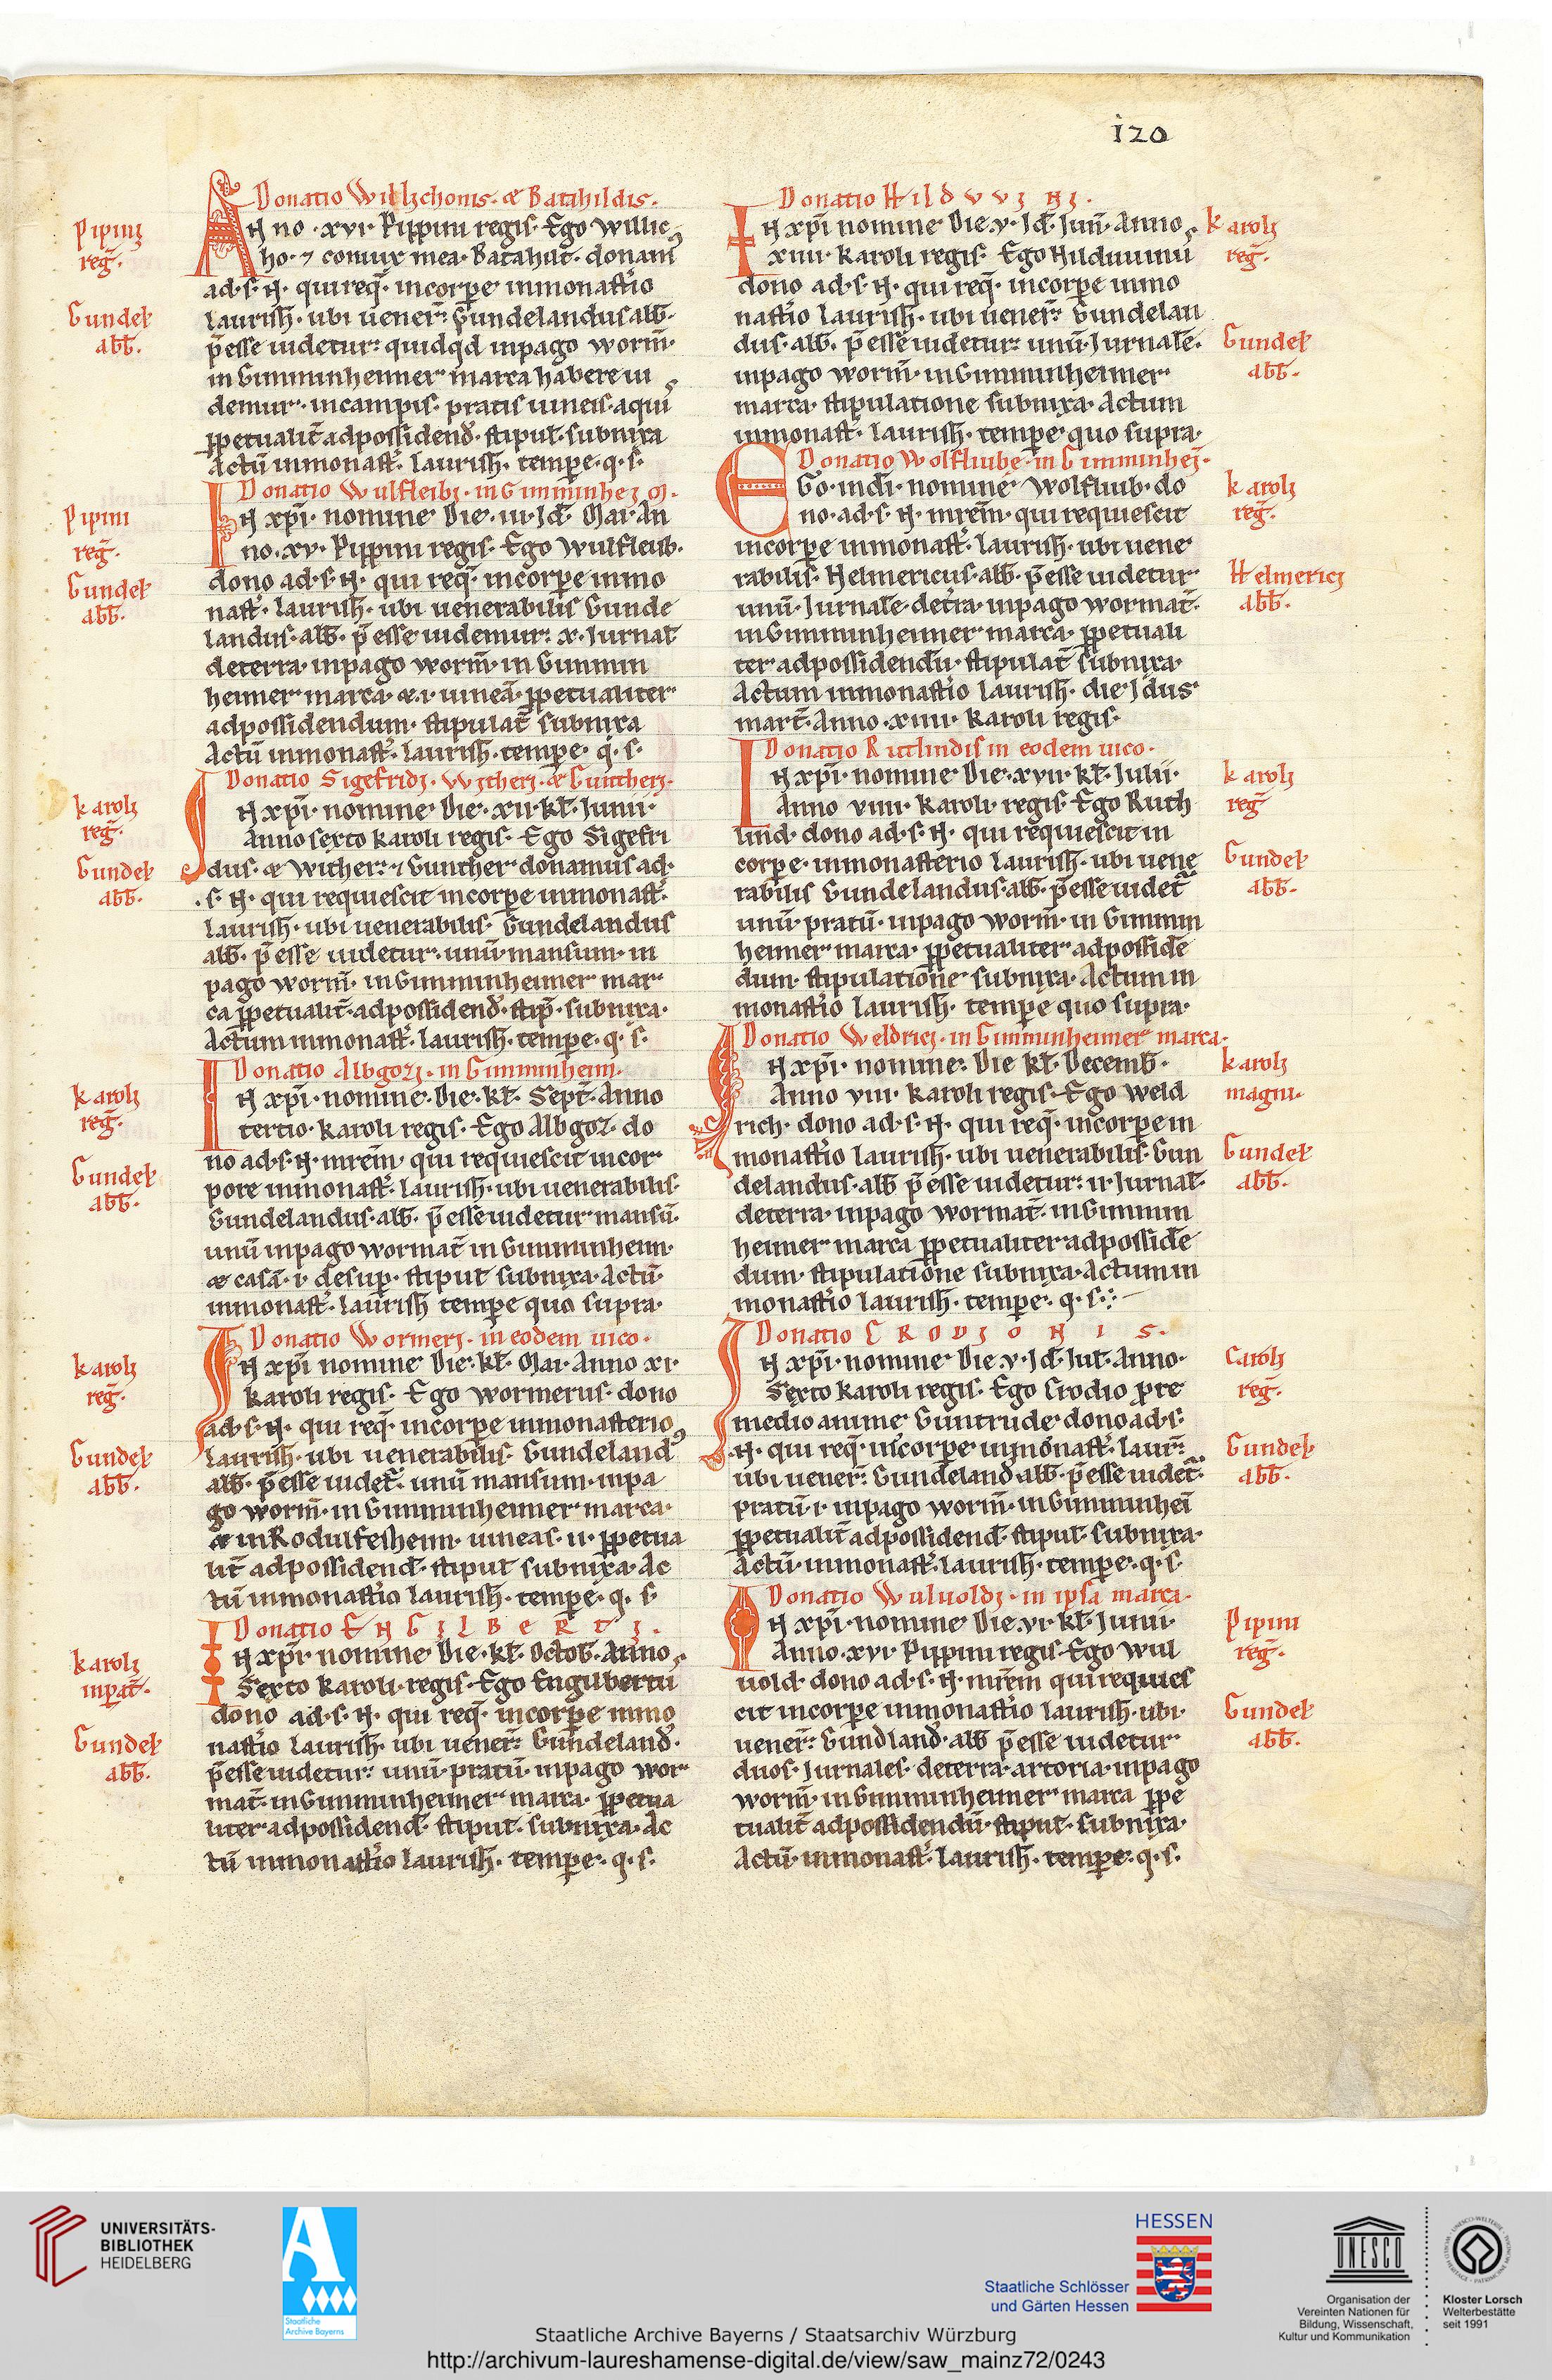 120
Donatio Willichonis. & Batahildis.
Pipini reg̅.
AN no. xvi. Pippini regis. Ego Willic
ho. ⁊ coniux mea. Batahilt. donam᷒
ad. s. N. qui req̅. in corpe in monast̅io
Gundel abb̅.
laurish̅. ubi uener̅. Gundelandus abb̅.
p̅esse uidetur. quidq̇d in pago worm̅.
in Gimminheimer marca habere ui
demur. in campis. pratis uineis. aquis
ꝑpetualit̅ ad possidend̅. stipul̅. subnixa
Actū in monast̅. laurish̅. tempe. q. s.
Donatio Wulfleibi. in Gimminheim.
Pipini reg̅.
IN xp̅i. nomine Die. iii. Id̅. Mai. An
no. xv. Pippini regis. Ego Wulfleib.
Gundel abb̅.
dono ad. s. N. qui req̅. in corpe in mo
nast̅. laurish̅. ubi uenerabilis Gunde
landus. abb̅. p̅esse uidemur. x. Iurnal̅
de terra in pago worm̅. in Gimmin
heimer marca. & i. uineā. ꝑpetualiter
ad possidendum. stipulat̅ subnixa
Actū in monast̅. laurish̅. tempe. q. s.
Donatio Sigefridi. Witheri. & Guntheri.
Karoli reg̅.
IN xp̅i. nomine Die. xii. kl̅. Iunii.
Anno sexto karoli regis. Ego Sigefri
Gundel abb̅.
dus. & Wither. ⁊ Gunther donamus ad.
s. N. qui requiescit in corpe in monast̅.
laurish̅. ubi uenerabilis. Gundelandus
abb̅. p̅esse uidetur. unū mansum. in
pago worm̅. in Gimminheimer mar
ca ꝑpetualit̅. ad possidend̅. stip̅. subnixa.
Actum in monast̅. laurish̅. tempe. q. s.
Donatio Albgozi. in Gimminheim.
Karoli reg̅.
IN xp̅i. nomine. Die. kl̅. Sept̅. Anno
tertio. karoli regis. Ego Albgoz. do
Gundel abb̅.
no ad. s. N. mr̅em̅ qui requiescit in cor
pore in monast̅. laurish̅. ubi uenerabilis.
Gundelandus. abb̅. p̅esse uidetur mansū.
unū in pago wormat̅ in Gimminheim.
& casā. i. desup̅. stipul̅ subnixa. Actū.
in monast̅. laurish̅ tempe quo supra.
Donatio Wormeri. in eodem uico.
Karoli reg̅.
IN xp̅i nomine Die. kl̅. Mai. Anno xi.
karoli regis. Ego wormerus. dono
ad. s. N. qui req̅. in corpe in monasterio
Gundel abb̅.
laurish̅. ubi uenerabilis. Gundeland᷒
abb̅. p̅esse uidet̅. unū mansum. in pa
go worm̅. in Gimminheimer marca.
& in Rodulfesheim. uineas. ii. ꝑpetua
lit̅ ad possidend̅. stipul̅ subnixa. Ac
tū in monast̅io laurish̅. tempe. q. s.
Donatio ENGILBERTI.
Karoli inpat̅.
IN xp̅i nomine Die. kl̅. Octob̅. Anno
Sexto karoli. regis. Ego Engilbertus
dono ad. s. N. qui req̅. in corpe in mo
Gundel abb̅.
nast̅io laurish̅. ubi uener̅. Gundeland᷒.
p̅esse uidetur. unū. pratū. in pago wor
mat̅. in Gimminheimer marca. ꝑpetua
liter ad possidend̅. stipul̅. subnixa. Ac
tū in monast̅io laurish̅. tempe. q. s.
Donatio HildvviNi.
Karoli reg̅.
IN xp̅i nomine Die. v. Id̅. Iun̅. Anno
xiiii. karoli regis. Ego Hilduuinus
dono ad. s. N. qui req̅. in corpe in mo
nast̅io laurish̅. ubi uener̅. Gundelan
Gundel abb̅.
dus. abb̅. p̅esse uidetur. unū. Iurnalē.
in pago worm̅. in Gimminheimer
marca. stipulatione subnixa. Actum
in monast̅. laurish̅. tempe quo supra.
Donatio Wolfliube. in Gimminhei.
Karoli reg̅.
EGo. in dī. nomine Wolfliub. do
no. ad. s. N. mr̅em̅. qui requiescit
in corpe in monast̅. laurish̅. ubi uene
Helmerici abb̅.
rabilis. Helmericus. abb̅. p̅esse uidetur
unū. Iurnalē. de t̅ra. in pago wormat̅.
in Gimminheimer marca. ꝑpetuali
ter ad possidendū. stipulat̅ subnixa.
Actum in monast̅io laurish̅. die Idus
mart̅. Anno. xiiii. karoli regis.
Donatio Rutlindis in eodem uico.
Karoli reg̅
IN xp̅i. nomine Die. xvii. kl̅. Julii.
Anno viiii. karoli. regis. Ego Ruth
lind. dono ad. s. N. qui requiescit in
Gundel abb̅.
corpe. in monasterio laurish̅. ubi uene
rabilis Gundelandus. abb̅. p̅esse uidet̅
unū. pratū. in pago worm̅. in Gimmin
heimer marca. ꝑpetualiter ad possidē
dum. stipulatione subnixa. Actum in
monast̅io laurish̅. tempe quo supra.
Donatio Weldrici. in Gimminheimer marca.
Karoli magni.
IN xp̅i. nomine. Die kl̅. Decemb̅.
Anno viii. karoli regis. Ego Weld
rich. dono ad. s. N. qui req̅. in corpe in
Gundel abb̅.
monast̅io laurish̅. ubi uenerabilis. Gun
delandus. abb̅ p̅esse uidetur. ii. Iurnal̅.
de terra. in pago wormat̅. in Gimmin
heimer marca ꝑpetualiter ad possidē
dum. stipulatione subnixa. Actum in
monast̅io laurish̅. tempe. q. s.
Donatio CRODIONIS.
Caroli reg̅.
IN xp̅i. nomine Die. v. Id̅. Iul̅. Anno.
Sexto karoli regis. Ego Crodio p̱re
medio anime Guntrude dono ad. s.
Gundel abb̅.
N. qui req̅. in corpe in monast̅. laur̅.
ubi uener̅. Gundeland᷒ abb̅. p̅esse uidet̅.
pratū. i. in pago worm̅. in Gimminheī
ꝑpetualit̅ ad possidend̅. stipul̅. subnixa.
Actū. in monast̅. laurish̅. tempe. q. s.
Donatio Wuluoldi. in ipsa marca.
Pipini reg̅.
IN xp̅i. nomine Die. vi. kl̅. Iunii.
Anno. xvi. Pippini regis. Ego Wul
uold. dono ad. s. N. mr̅em̅ qui requies
Gundel abb̅.
cit in corpe in monast̅io laurish̅. ubi.
uener̅. Gundland᷒. abb̅ p̅esse uidetur
duos. Iurnales. de terra. artoria. in pago
worm̅. in Gimminheimer marca ꝑpe
tualit̅ ad possidendū. stipul̅. subnixa.
Actū. in monast̅. laurish̅. tempe. q. s.
UNIVERSITÄTS-
BIBLIOTHEK
HEIDELBERG
A
Staatliche
Archive Bayerns
HESSEN
Staatliche Schlösser
und Gärten Hessen
UNESCO
Organisation der
Vereinten Nationen für
Bildung, Wissenschaft,
Kultur und Kommunikation
Kloster Lorsch
Welterbestätte
seit 1991
Staatliche Archive Bayerns / Staatsarchiv Würzburg
http://archivum-laureshamense-digital.de/view/saw_mainz72/0243